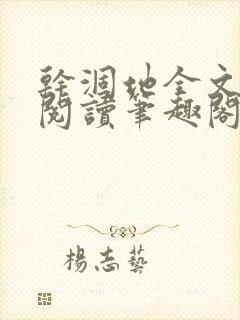 幹涸地全文
閱讀筆趣閣
楊志藝